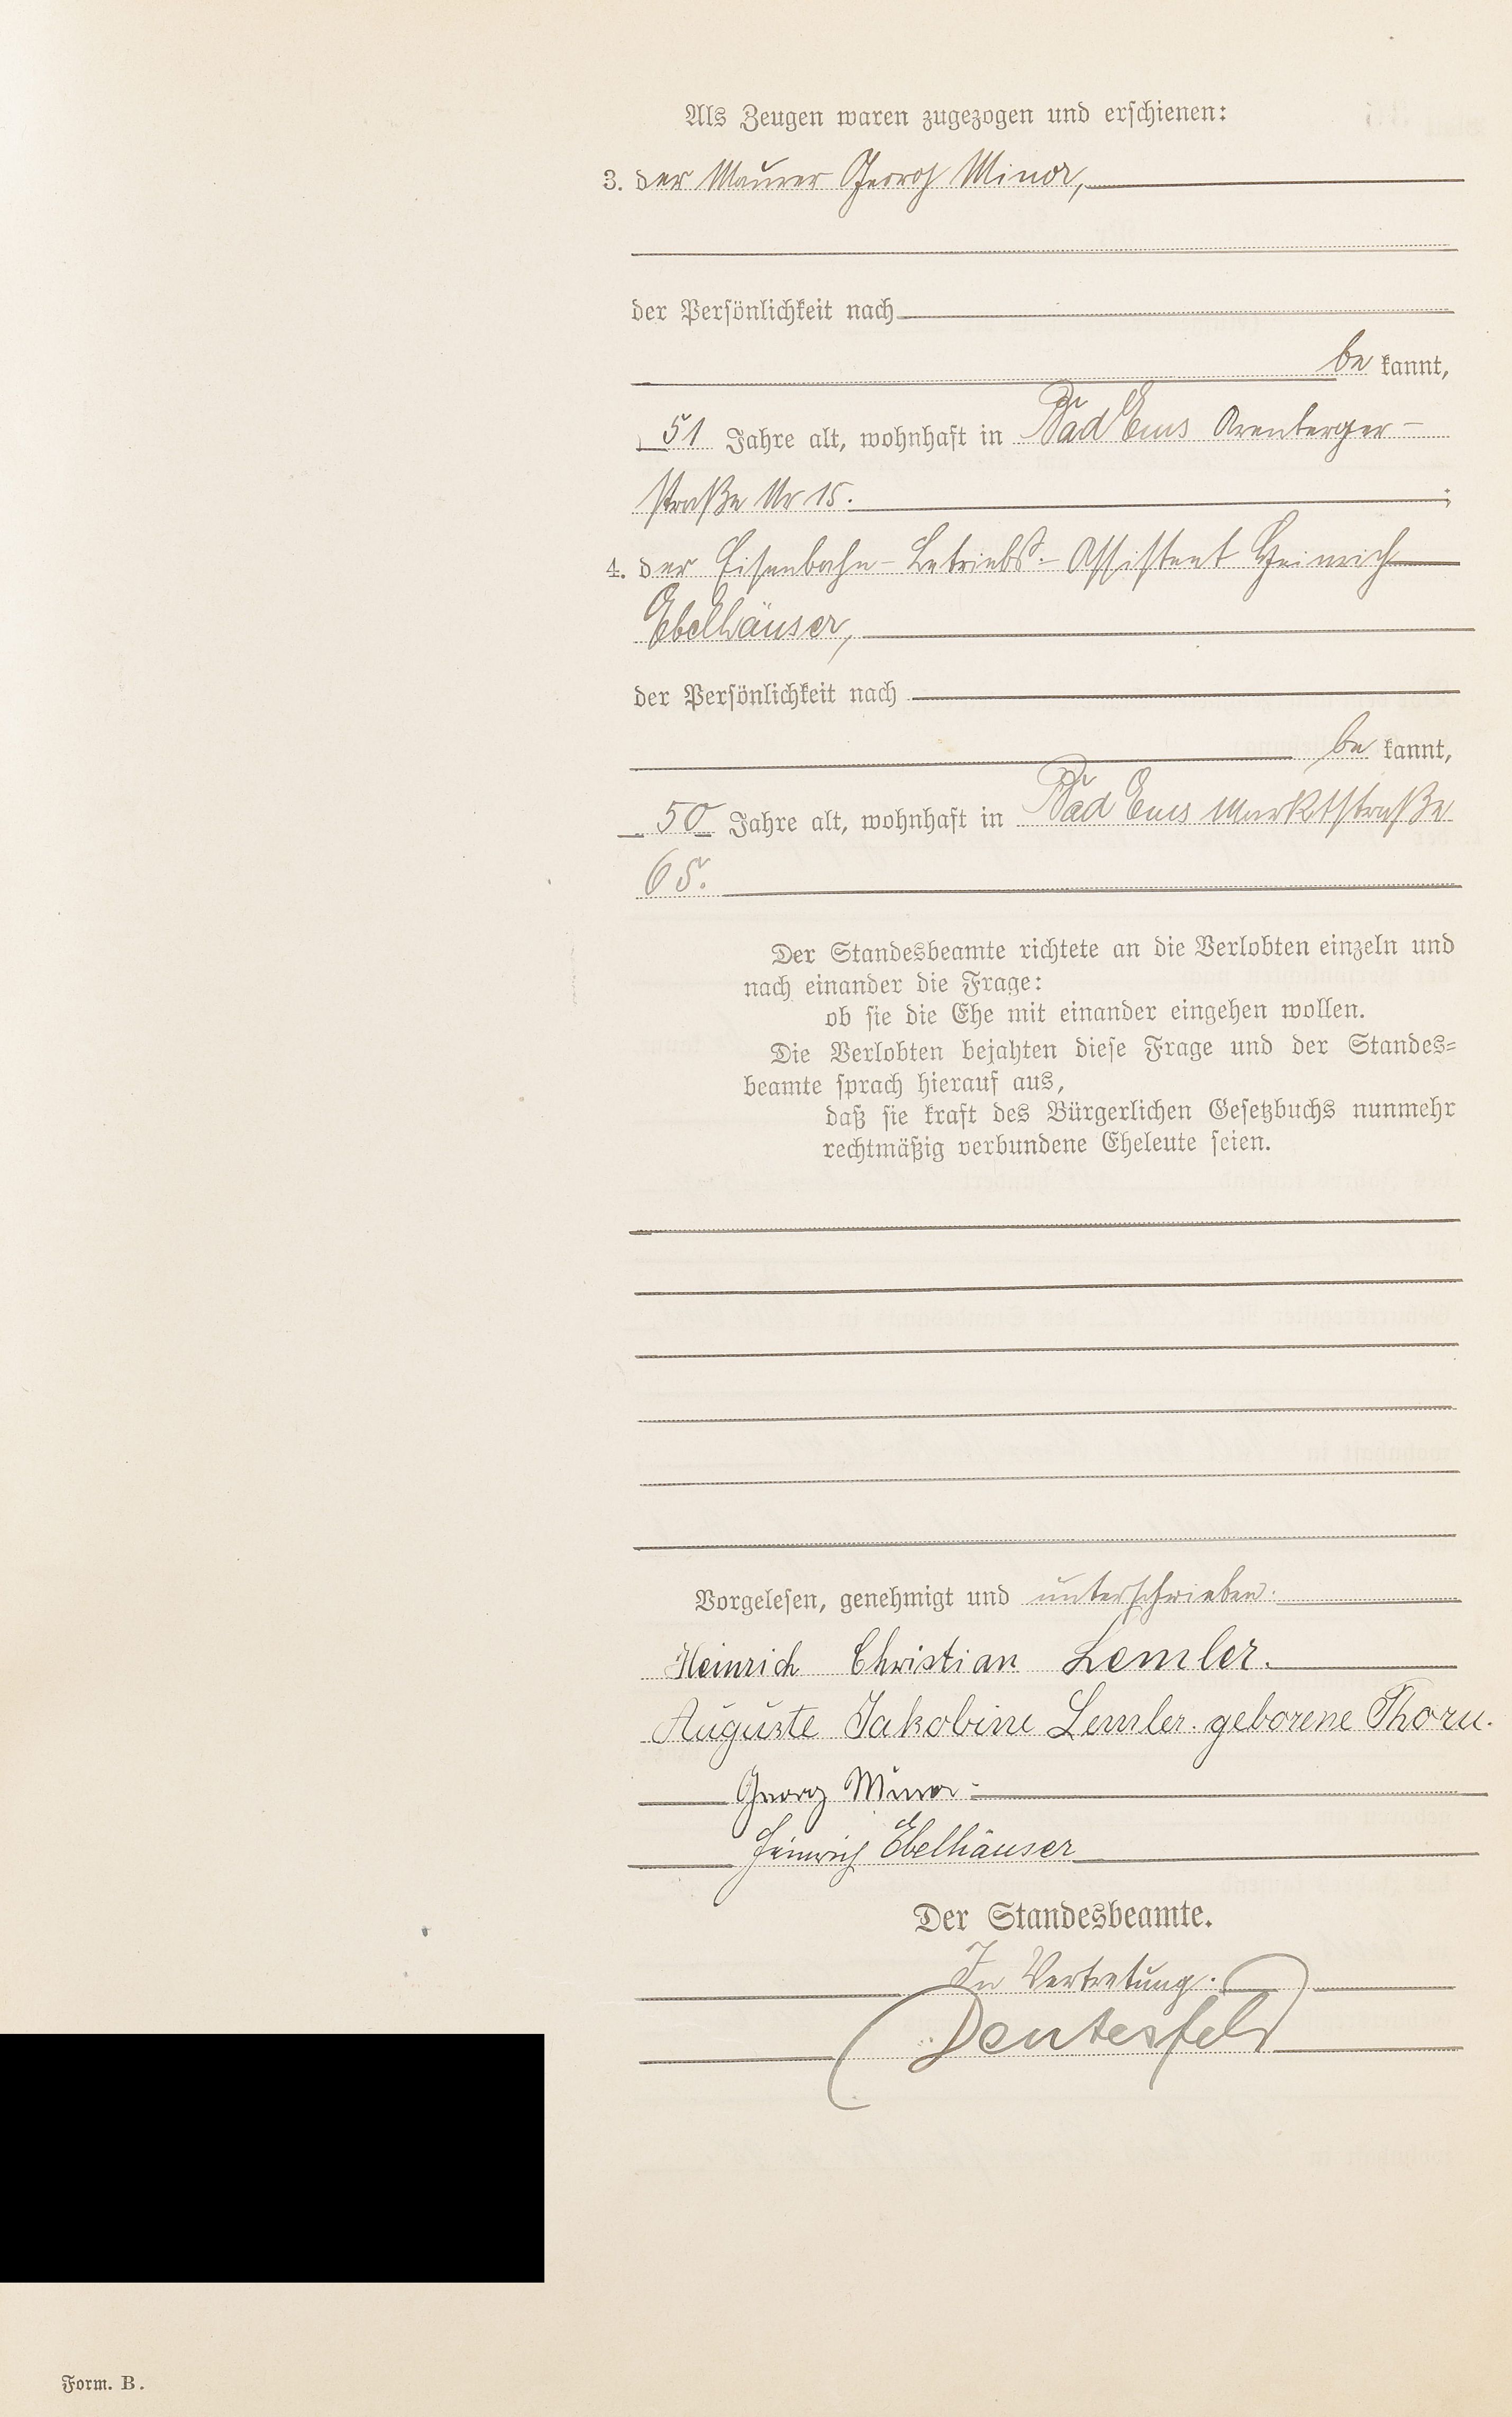 Als Zeugen waren zugezogen und erschienen:
3. der Maurer Georg Minor,
der Persönlichkeit nach
be kannt,
51 Jahre alt, wohnhaft in Bad Ems Arenberger-
straße Nr 15. ;
4. der Eisenbahn-Betriebs.-Assistent Heinrich
Ebelhäuser,
der Persönlichkeit nach
be kannt,
50 Jahre alt, wohnhaft in Bad Ems Marktstraße
65.
Der Standesbeamte richtete an die Verlobten einzeln und
nach einander die Frage:
ob sie die Ehe mit einander eingehen wollen.
Die Verlobten bejahten diese Frage und der Standes=
beamte sprach hierauf aus,
daß sie kraft des Bürgerlichen Gesetzbuchs nunmehr
rechtmäßig verbundene Eheleute seien.
Vorgelesen, genehmigt und unterschrieben.
Heinrich Christian Lemler.
Auguste Jakobine Lemler. geborene Thorn.
Georg Minor.
Heinrich Ebelhäuser
Der Standesbeamte.
In Vertretung.
Deutesfeld
Form. B.